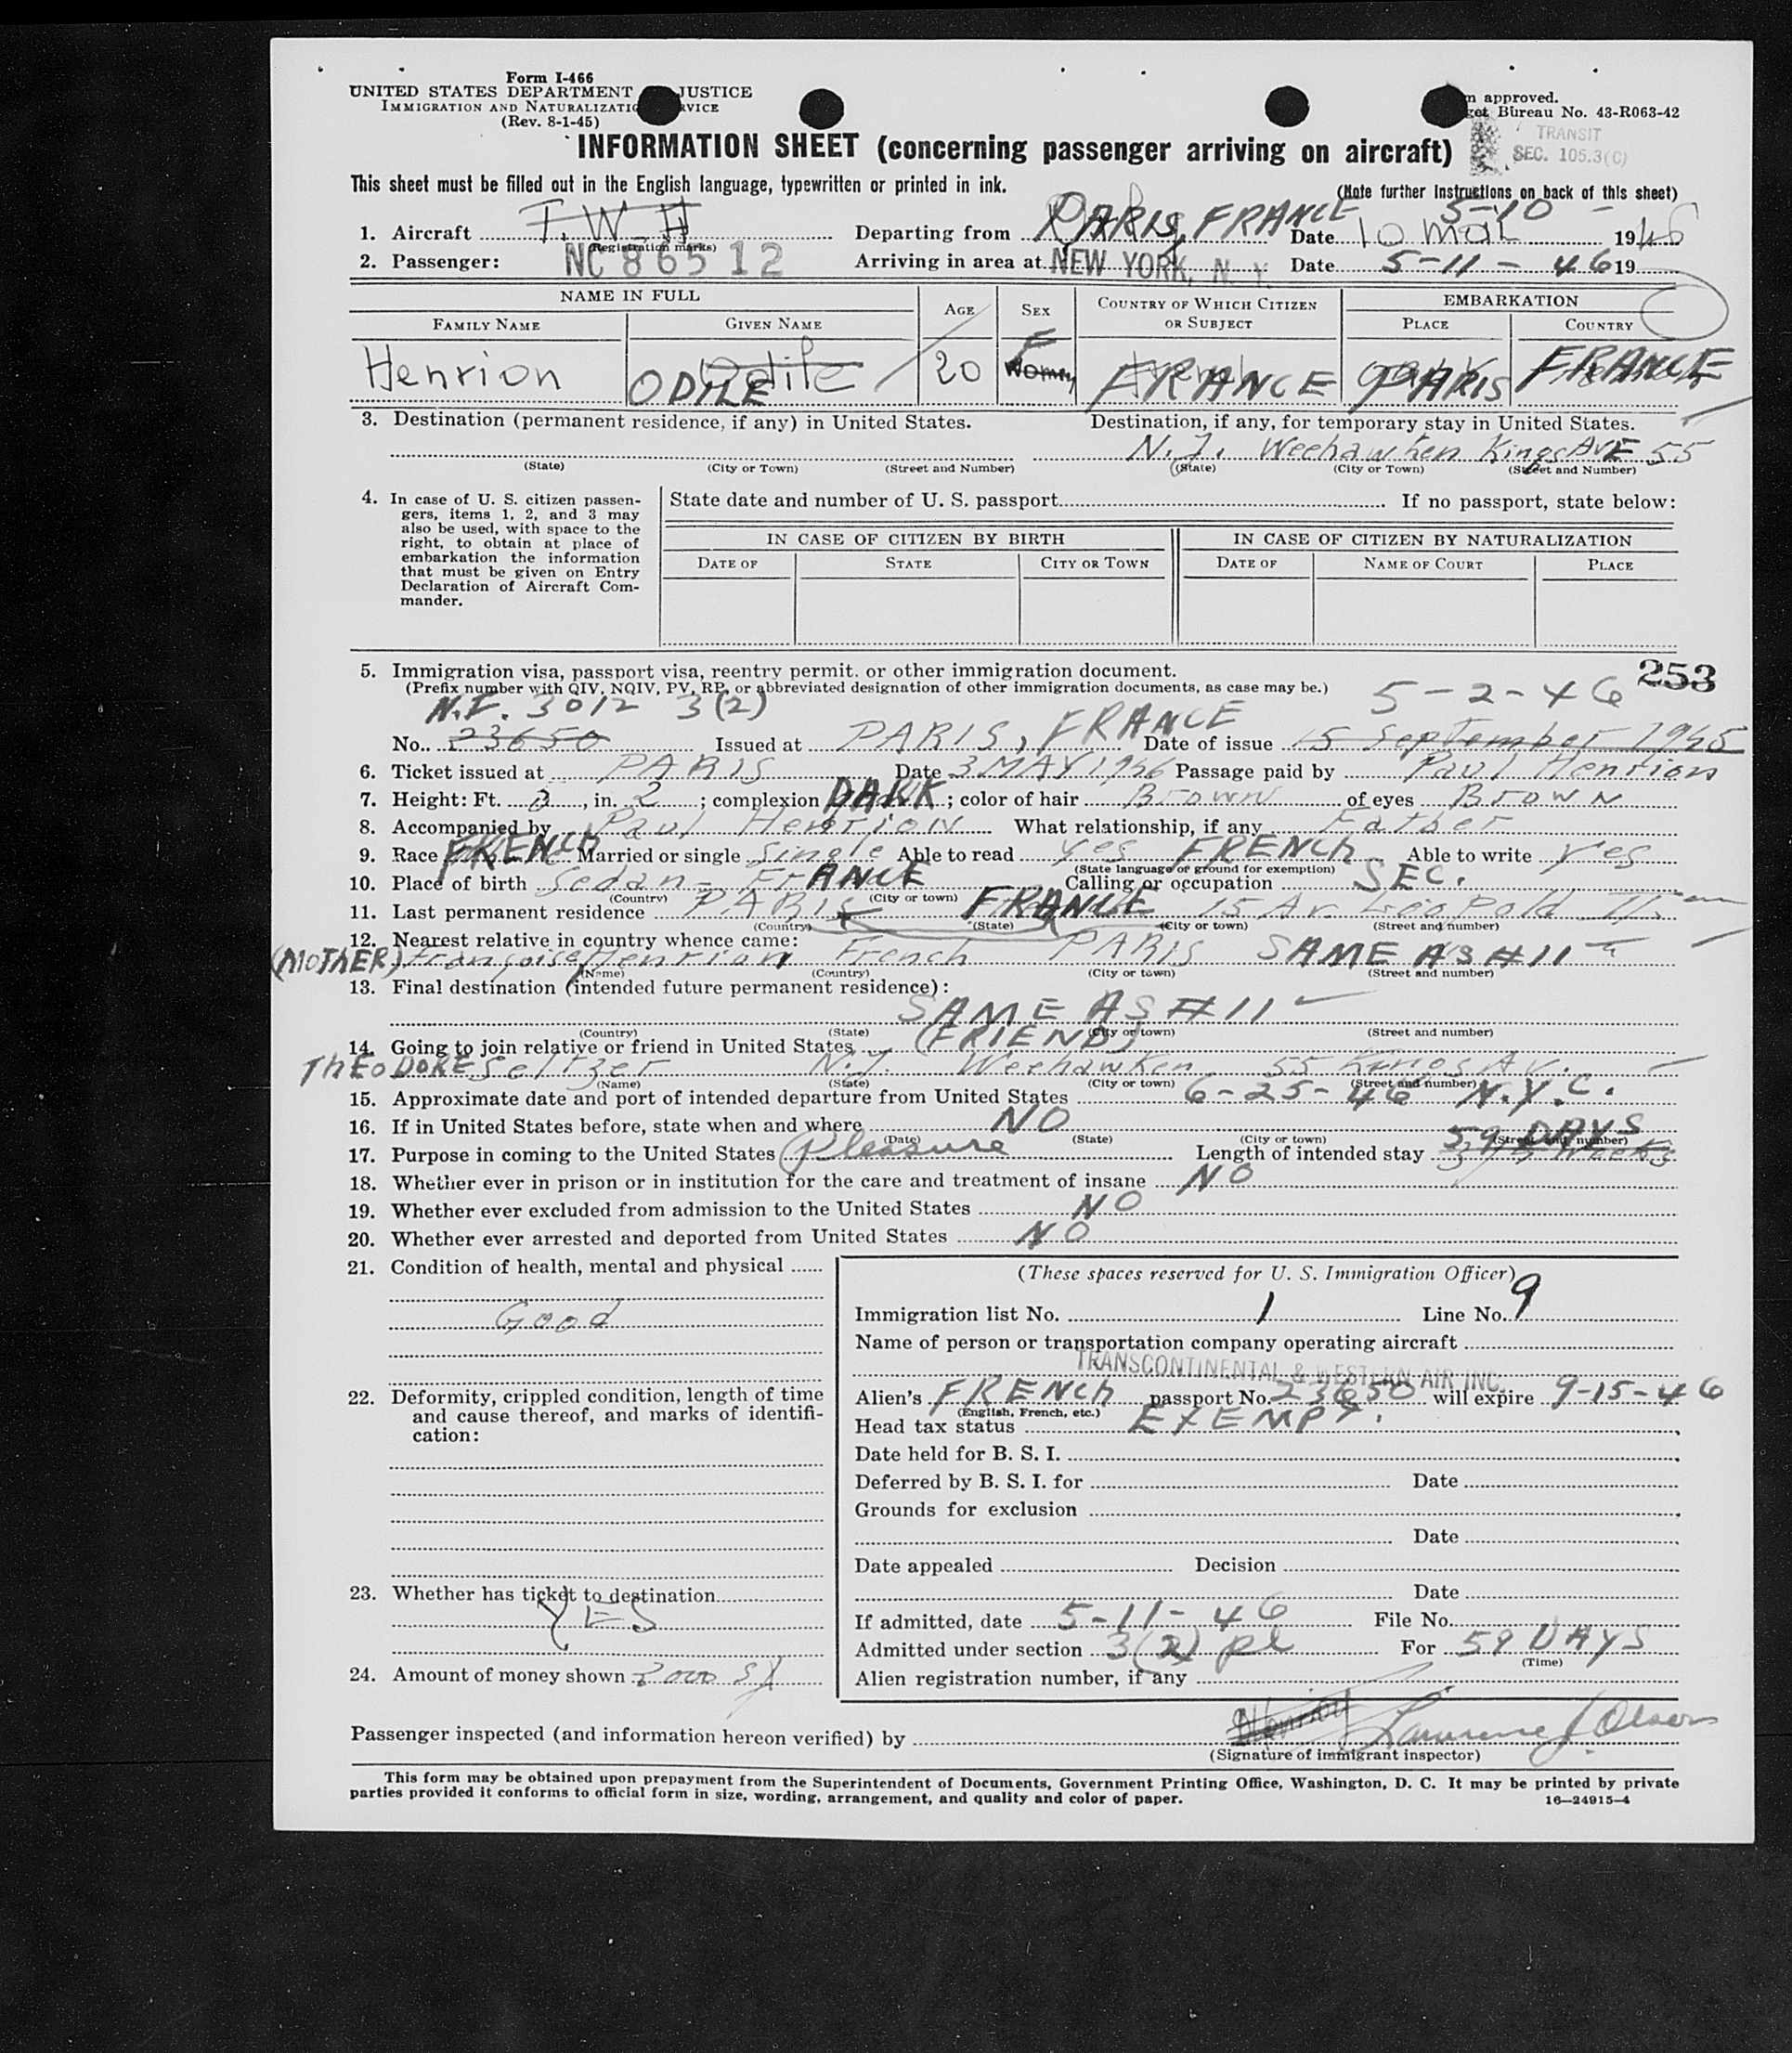 Form I-466
UNITED STATES DEPARTMENT JUSTICE
IMMIGRATION AND NATURALIZATIO VICE
(Rev. 8-1-45)
m approved.
get Bureau No. 43-R063-42
TRANSIT
SEC. 105.3(C)
INFORMATION SHEET (concerning passenger arriving on aircraft)
This sheet must be filled out in the English language, typewritten or printed in ink.
(Note further instructions on back of this sheet)
1. Aircraft T. W. H Departing from PARIS, FRANCE Date 5-10- 10 Mai 1946
(Registration marks)
2. Passenger: NC 86512 Arriving in area at NEW YORK, N. Y. Date 5-11-46 19
NAME IN FULL AGE SEX COUNTRY OF WHICH CITIZEN OR SUBJECT EMBARKATION
FAMILY NAME GIVEN NAME PLACE COUNTRY
Henrion Odile ODILE 20 F Women FRANCE PARIS FRANCE
3. Destination (permanent residence, if any) in United States. Destination, if any, for temporary stay in United States.
N.J. Weehawken Kings AVE 55
(State) (City or Town) (Street and Number) (State) (City or Town) (Street and Number)
4. In case of U. S. citizen passengers, items 1, 2, and 3 may also be used, with space to the right, to obtain at place of embarkation the information that must be given on Entry Declaration of Aircraft Commander.
State date and number of U. S. passport If no passport, state below:
IN CASE OF CITIZEN BY BIRTH IN CASE OF CITIZEN BY NATURALIZATION
DATE OF STATE CITY OR TOWN DATE OF NAME OF COURT PLACE
5. Immigration visa, passport visa, reentry permit. or other immigration document.
253
(Prefix number with QIV, NQIV, PV, RP, or abbreviated designation of other immigration documents, as case may be.)
N.I. 3012 3(2) 5-2-46
No. 23650 Issued at PARIS, FRANCE Date of issue 15 September 1945
6. Ticket issued at PARIS Date 3 MAY 1946 Passage paid by Paul Henrion
7. Height: Ft. 5, in. 2; complexion DARK; color of hair Brown of eyes BrowN
8. Accompanied by Paul HenrioN What relationship, if any Father
9. Race FRENCH Married or single Single Able to read yes FRENCH Able to write Yes
(State language or ground for exemption)
10. Place of birth Sedan - FrANCE Calling or occupation SEC.
(Country) (City or town)
11. Last permanent residence PARIS FRANCE 15 Av. Leopold II
(Country) (State) (City or town) (Street and number)
12. Nearest relative in country whence came:
(MOTHER) Françoise Henrion French PARIS SAME AS #11
(Name) (Country) (City or town) (Street and number)
13. Final destination (intended future permanent residence):
SAME AS #11
(Country) (State) (City or town) (Street and number)
14. Going to join relative or friend in United States (FRIEND)
THEODORE Seltzer N.J. Weehawken 55 Kings Av.
(Name) (State) (City or town) (Street and number)
15. Approximate date and port of intended departure from United States 6-25-46 N.Y.C.
16. If in United States before, state when and where NO
(Date) (State) (City or town) (Street and number)
17. Purpose in coming to the United States Pleasure Length of intended stay 59 DAYS
18. Whether ever in prison or in institution for the care and treatment of insane NO
19. Whether ever excluded from admission to the United States NO
20. Whether ever arrested and deported from United States NO
21. Condition of health, mental and physical
Good
22. Deformity, crippled condition, length of time and cause thereof, and marks of identification:
23. Whether has ticket to destination
YES
24. Amount of money shown
(These spaces reserved for U. S. Immigration Officer)
Immigration list No. 1 Line No. 9
Name of person or transportation company operating aircraft
TRANSCONTINENTAL & WESTERN AIR INC.
Alien's FRENCH passport No. 23650 will expire 9-15-46
(English, French, etc.)
Head tax status EXEMPT.
Date held for B. S. I.
Deferred by B. S. I. for Date
Grounds for exclusion
Date
Date appealed Decision
Date
If admitted, date 5-11-46 File No.
Admitted under section 3(2) pl For 59 DAYS
(Time)
Alien registration number, if any
Passenger inspected (and information hereon verified) by Lawrence J. Olsen
(Signature of immigrant inspector)
This form may be obtained upon prepayment from the Superintendent of Documents, Government Printing Office, Washington, D. C. It may be printed by private
parties provided it conforms to official form in size, wording, arrangement, and quality and color of paper.
16—24915-4